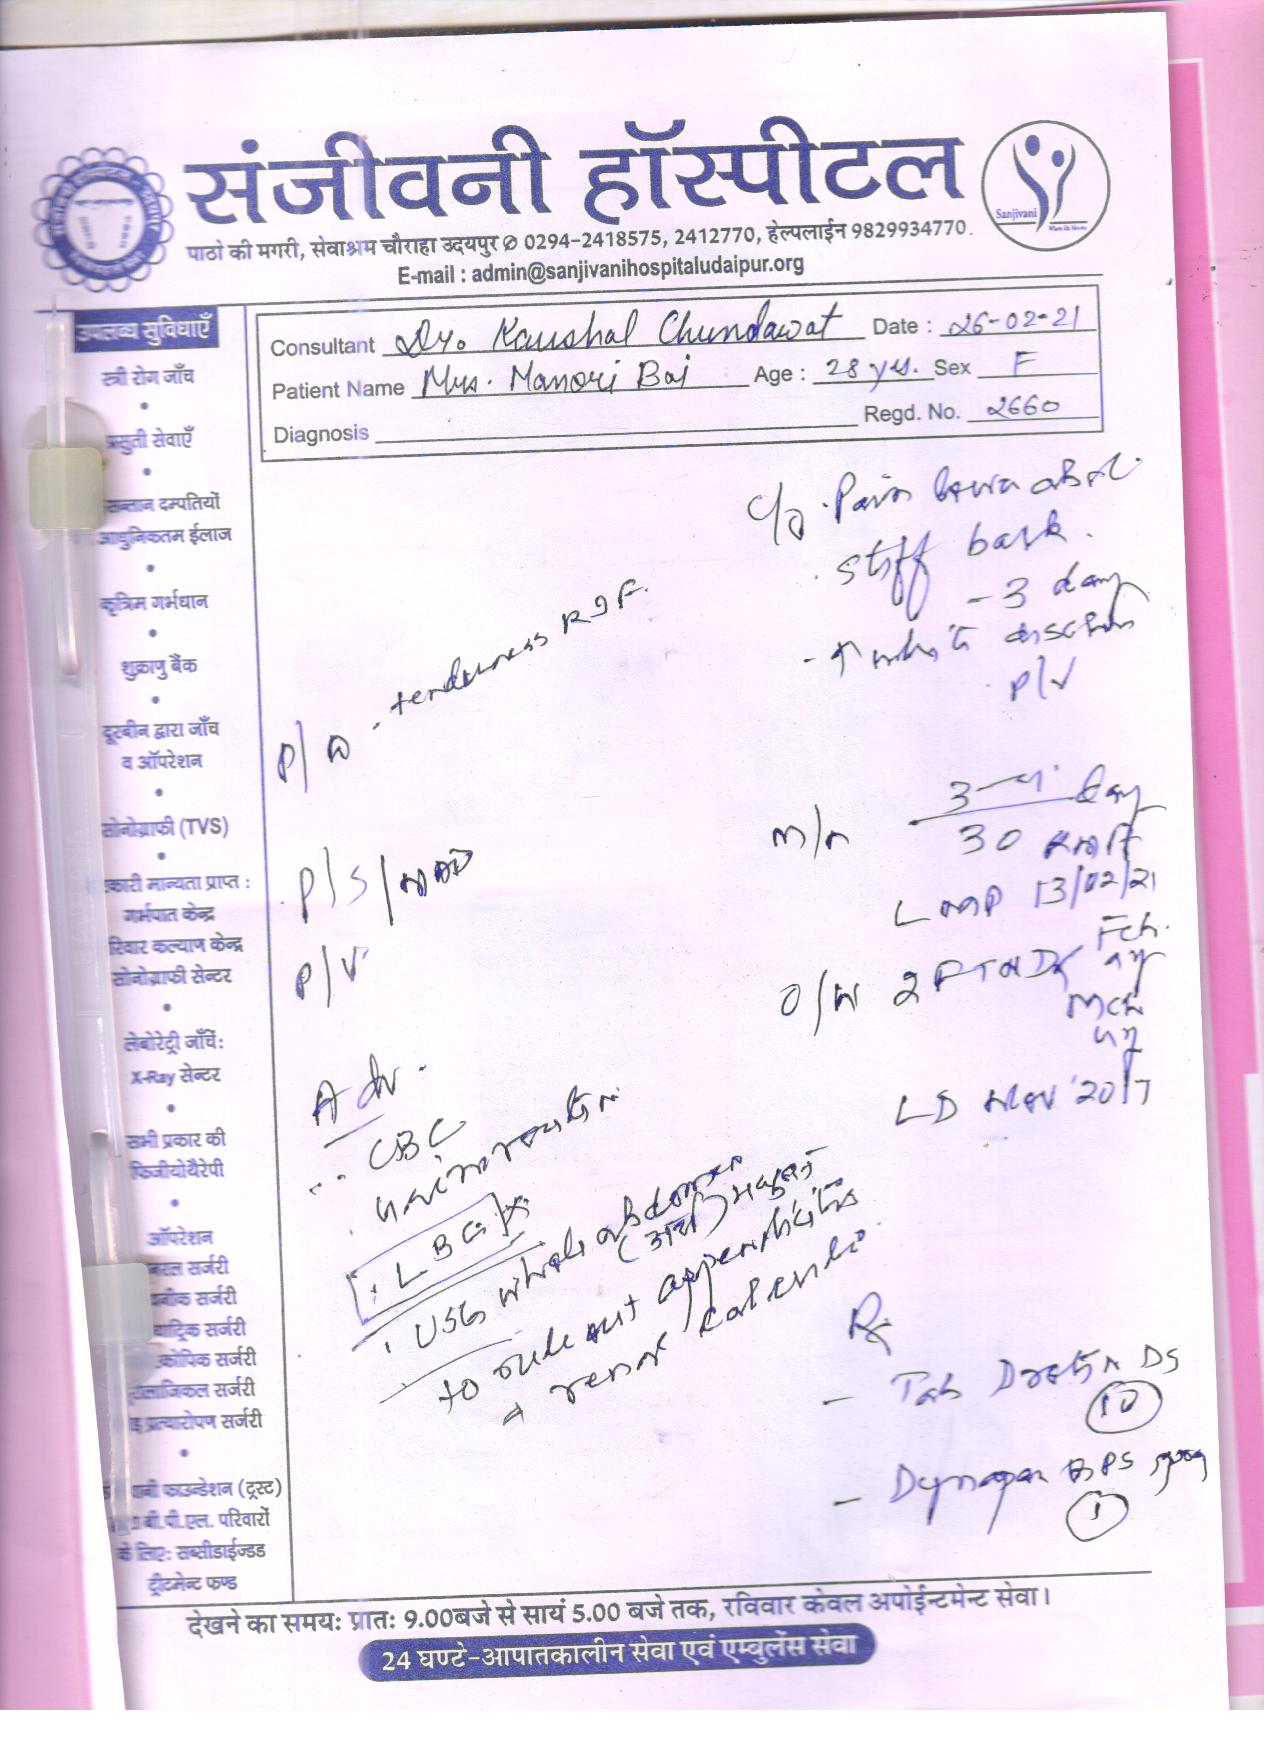 संजीवनी हॉस्पीटल
Sanjivani
पाठो की मगरी, सेवाश्रम चौराहा उदयपुर ✆ 0294-2418575, 2412770, हेल्पलाईन 9829934770.
E-mail : admin@sanjivanihospitaludaipur.org
Consultant Dr. Kaushal Chundawat Date : 26-02-21
Patient Name Mrs. Manori Bai Age : 28 yrs. Sex F
Diagnosis Regd. No. 2660
उपलब्ध सुविधाएँ
स्त्री रोग जाँच
प्रसुती सेवाएँ
सन्तान दम्पतियों
आधुनिकतम ईलाज
कृत्रिम गर्भधान
शुक्राणु बैंक
दूरबीन द्वारा जाँच
व ऑपरेशन
सोनोग्राफी (TVS)
कारी मान्यता प्राप्त :
गर्भपात केन्द्र
रिवार कल्याण केन्द्र
सोनोग्राफी सेन्टर
लेबोरेट्री जाँचें:
X-Ray सेन्टर
सभी प्रकार की
फिजीयोथैरेपी
ऑपरेशन
नरल सर्जरी
सर्जरी
सर्जरी
सर्जरी
सर्जरी
प्रत्यारोपण सर्जरी
फाउन्डेशन (ट्रस्ट)
बी.पी.एल. परिवारों
के लिए: सब्सीडाईज्डड
ट्रीटमेन्ट फण्ड
c/o . Pain lower abd.
. stiff back .
- 3 day
- ↑ white
P/V
P/A - tenderness RIF.
P/S/NAD
P/V
M/H 3-4 day
30
LMP 13/02/21
O/H 2 FTND Fch.
Mch
LD Nov 2017
Adv.
. CBC
. Urine routine
. USG whole abdomen
to rule out appendicitis
renal
Rx
- Tab DS
10
- Dynapar spray
1
देखने का समयः प्रातः 9.00बजे से सायं 5.00 बजे तक, रविवार केवल अपोईन्टमेन्ट सेवा।
24 घण्टे-आपातकालीन सेवा एवं एम्बुलेंस सेवा